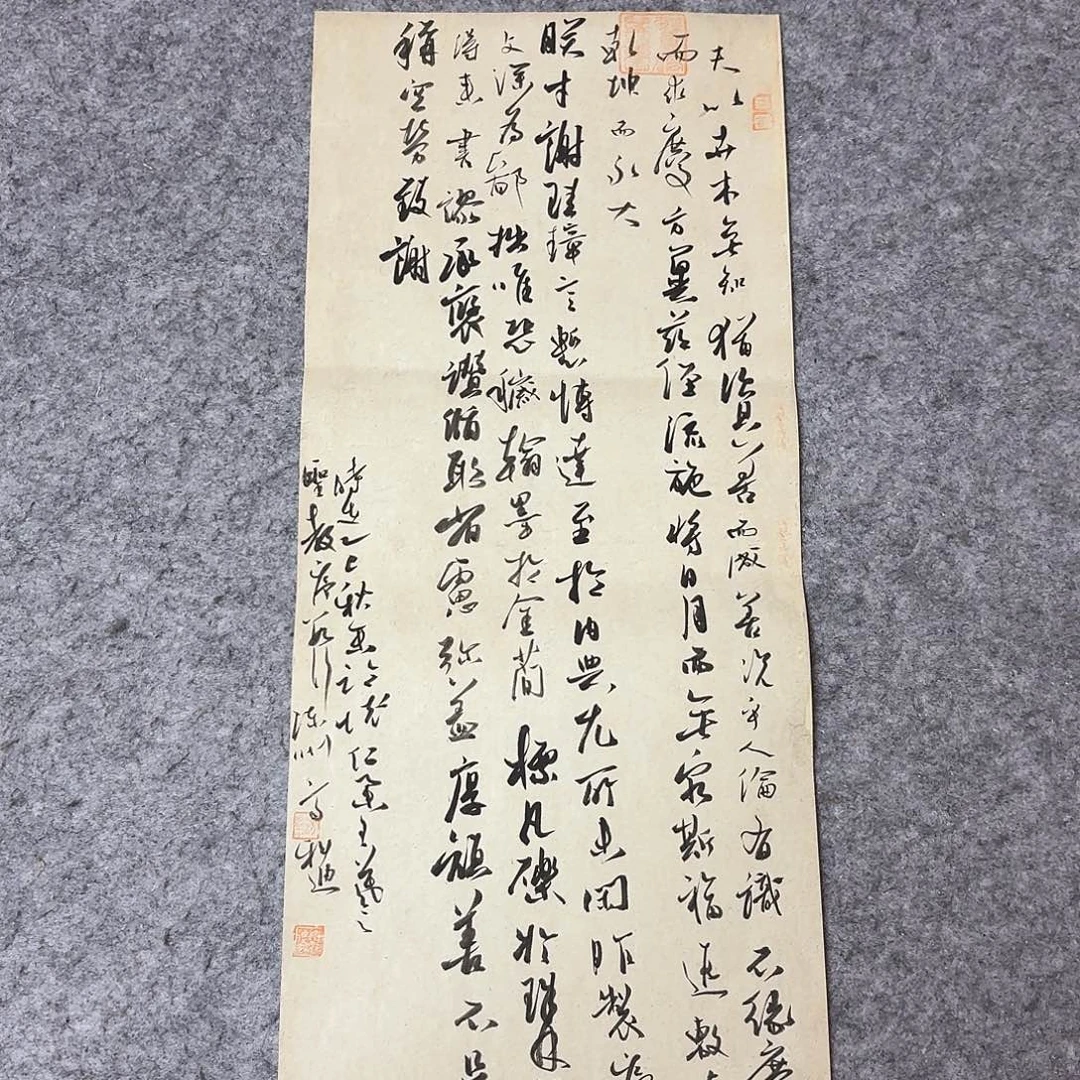 夫以卉木無知猶資善而成善況乎人倫有識不緣慶
而求慶方冀茲經流施將日月而無窮斯福遐敷
乾坤而永大
朕才謝珪璋言慙博達至於內典尤所未閑昨製序
文深為鄙拙唯恐穢翰墨於金簡標瓦礫於珠
得來書謬承褒讚循躬省慮弥益厚顏善不足
稱空勞致謝
時在上秋
聖教序